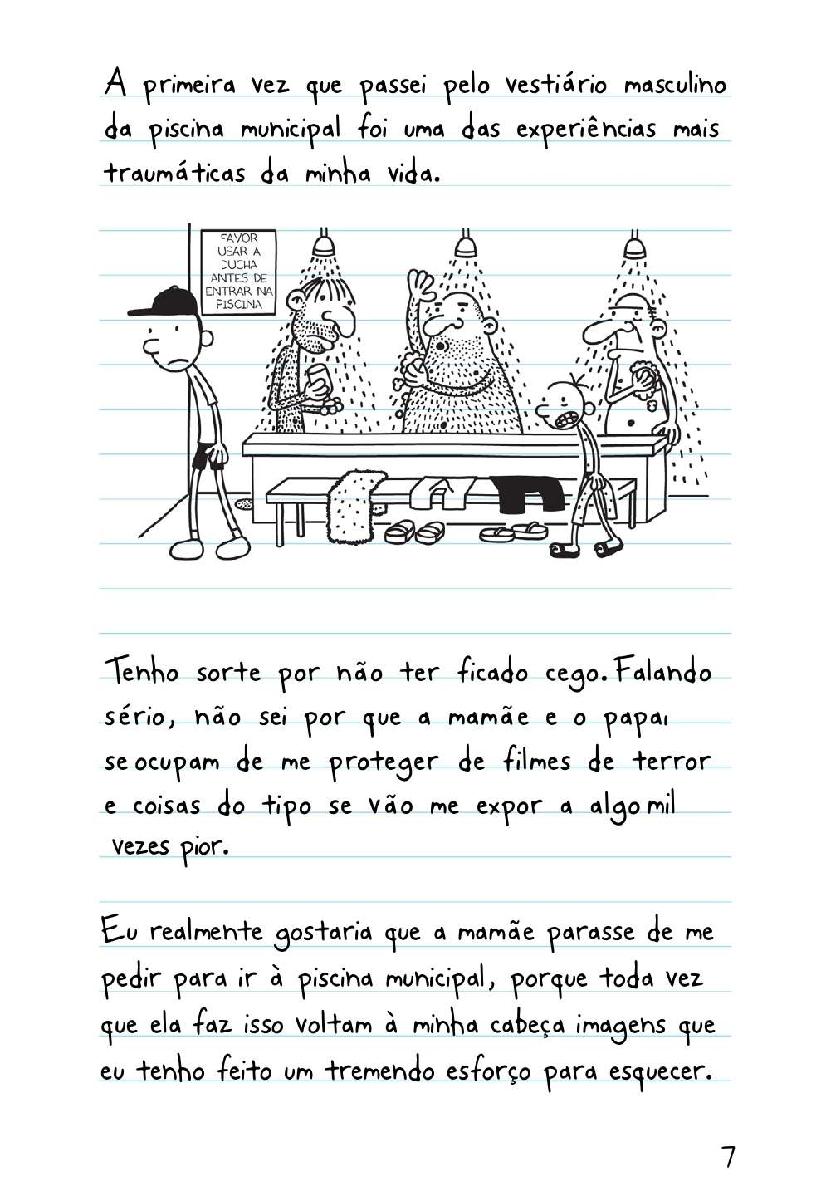 A primeira vez que passei pelo vestiário masculino
da piscina municipal foi uma das experiências mais
traumáticas da minha vida.
FAVOR
USAR A
DUCHA
ANTES DE
ENTRAR NA
PISCINA
Tenho sorte por não ter ficado cego. Falando
sério, não sei por que a mamãe e o papai
se ocupam de me proteger de filmes de terror
e coisas do tipo se vão me expor a algo mil
vezes pior.
Eu realmente gostaria que a mamãe parasse de me
pedir para ir à piscina municipal, porque toda vez
que ela faz isso voltam à minha cabeça imagens que
eu tenho feito um tremendo esforço para esquecer.
7